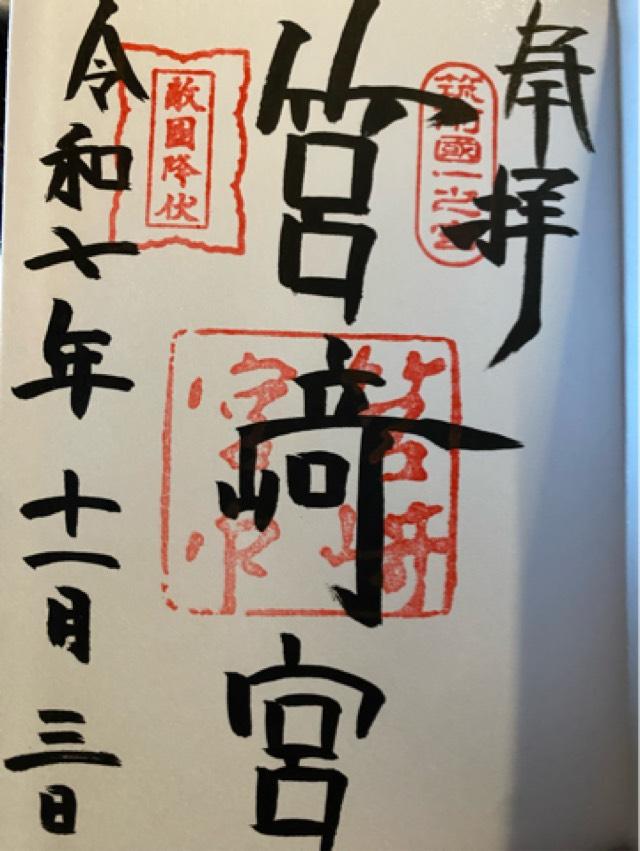 奉拝
筑前國一之宮
筥崎宮
筥崎宮印
敵國降伏
令和七年十一月三日